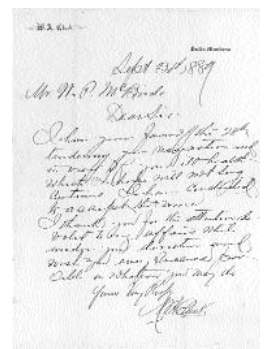 W. A. Clark
Butte Montana
Sept 23d, 1889
Mr W. P. McBride
Dear Sir:
I have your favor of the 20th
tendering your resignation and
in view of your ill health
which I hope will not long
continue I have concluded
to accept the same.
I thank you for the attention de-
voted to my affairs while
under your direction and
wish you every success poss-
ible in whatever you may do
Yours very truly
W A Clark